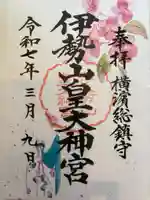 奉拝 横濱総鎮守
伊勢山皇大神宮
令和七年三月九日